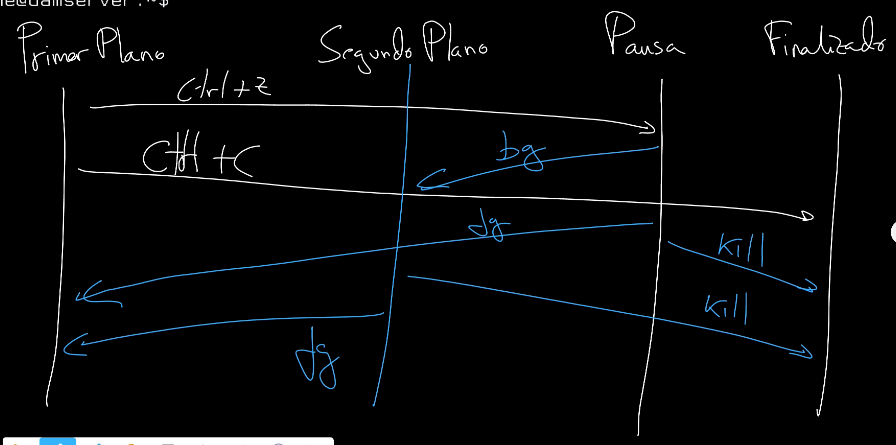 Primer Plano
Segundo Plano
Pausa
Finalizado
Ctrl+z
Ctrl+C
bg
fg
kill
kill
fg